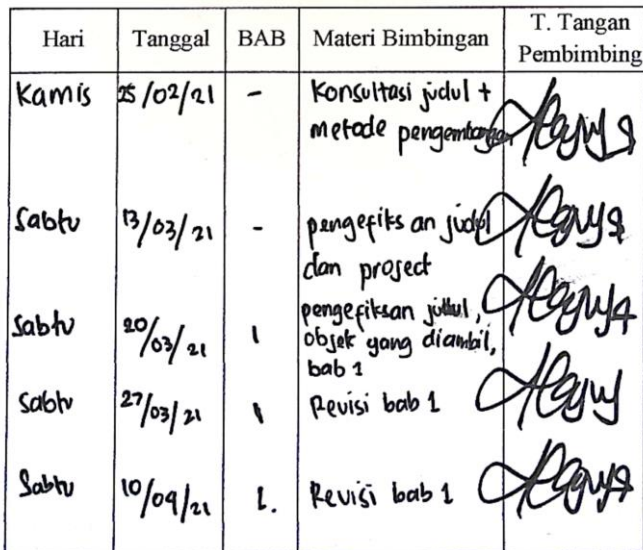 Hari Tanggal BAB Materi Bimbingan T. Tangan Pembimbing
Kamis 25/02/21 - Konsultasi judul +
metode pengembangan
Sabtu 13/03/21 - pengefiksan judul
dan project
Sabtu 20/03/21 1 pengefiksan judul,
objek yang diambil,
bab 1
Sabtu 27/03/21 1 Revisi bab 1
Sabtu 10/04/21 1. Revisi bab 1